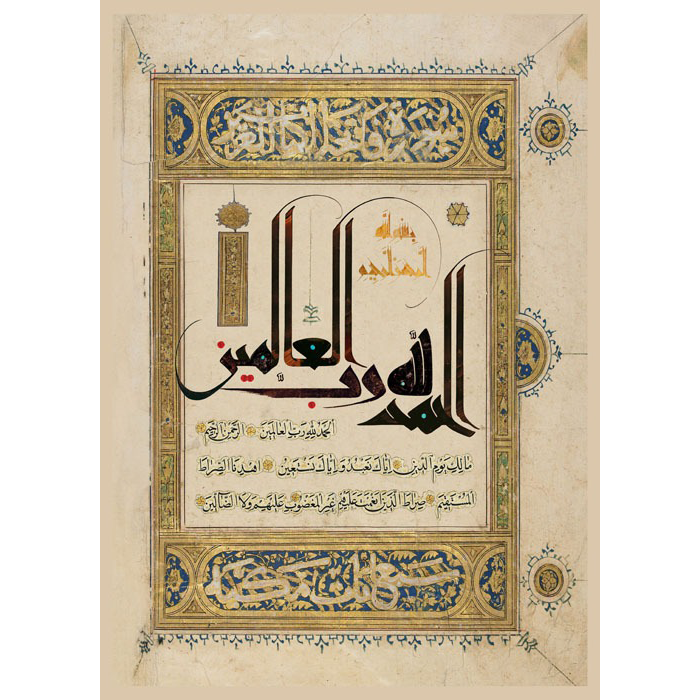 سورة فاتحة الكتاب
بسم الله
الرحمن الرحيم
الحمد لله رب العالمين
الحمد لله رب العالمين الرحمن الرحيم
مالك يوم الدين اياك نعبد واياك نستعين اهدنا الصراط
المستقيم صراط الذين انعمت عليهم غير المغضوب عليهم ولا الضالين
سبع ايات مكية